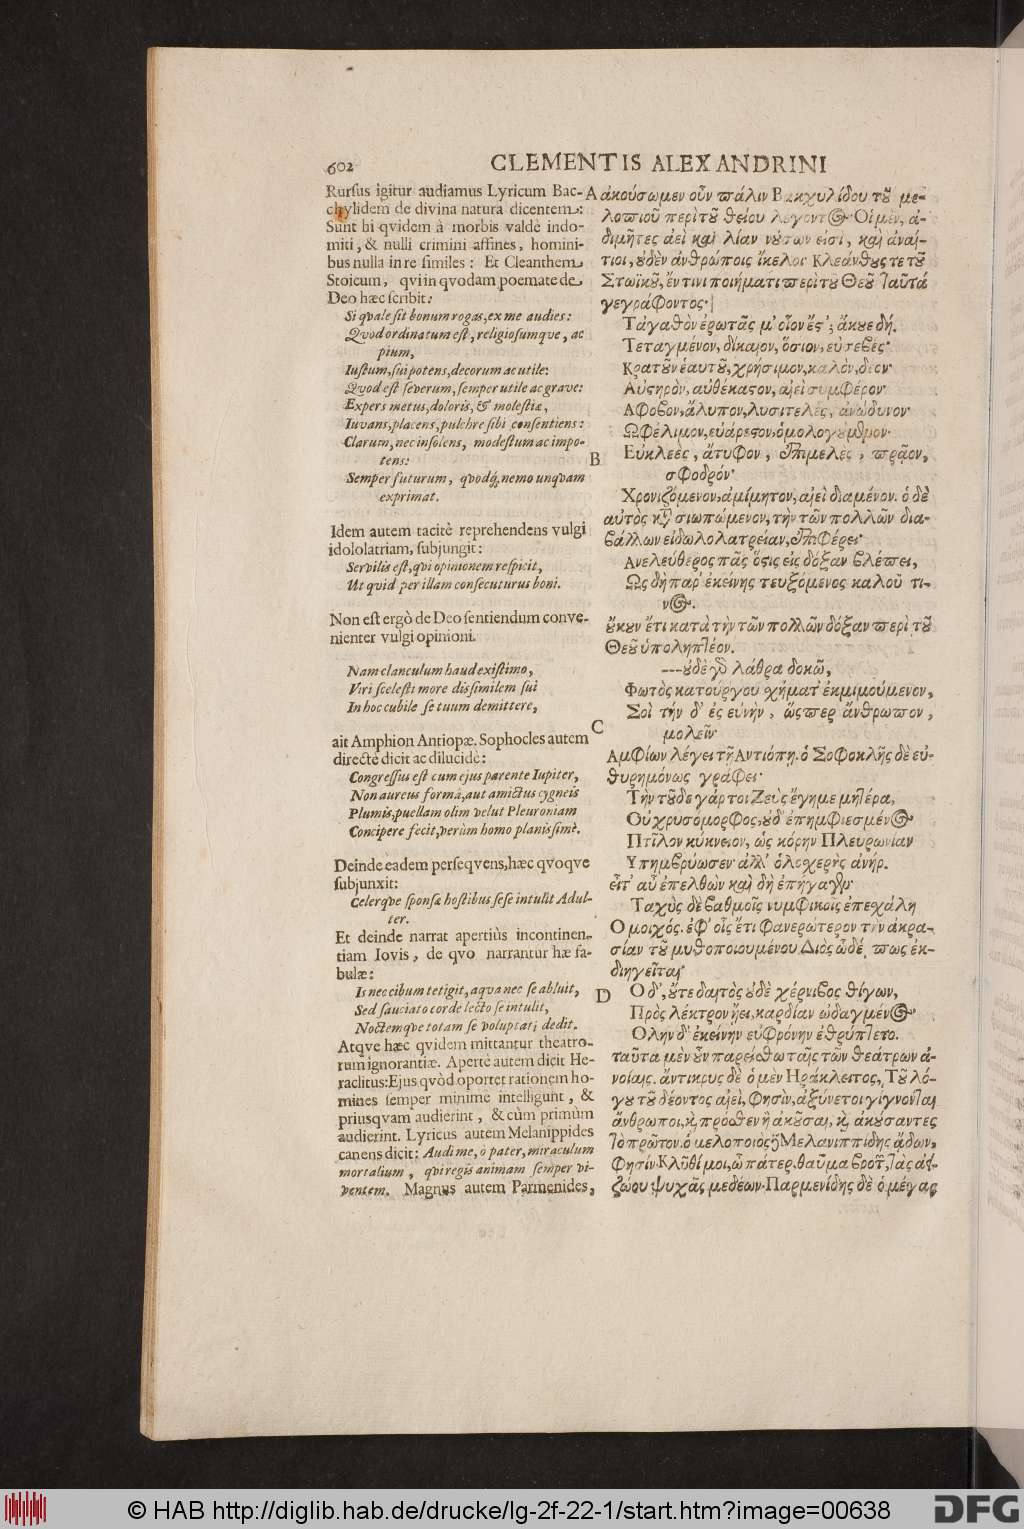 602
CLEMENTIS ALEXANDRINI
Rursus igitur audiamus Lyricum Bac-
chylidem de divina natura dicentem:
Sunt hi qvidem à morbis valdè indo-
miti, & nulli crimini affines, homini-
bus nulla in re similes: Et Cleanthem
Stoicum, qvi in qvodam poemate de
Deo hæc scribit:
Si qvale sit bonum rogas, ex me audies:
Qvod ordinatum est, religiosumqve, ac
pium,
Iustum, sui potens, decorum ac utile:
Qvod est severum, semper utile ac grave:
Expers metus, doloris, & molestiæ,
Iuvans, placens, pulchre sibi consentiens:
Clarum, nec insolens, modestum ac impo-
tens:
Semper futurum, qvodq́; nemo unqvam
exprimat.
Idem autem tacitè reprehendens vulgi
idololatriam, subjungit:
Servilis est, qvi opinionem respicit,
Ut qvid per illam consecuturus boni.
Non est ergò de Deo sentiendum conve-
nienter vulgi opinioni.
Nam clanculum haud existimo,
Viri scelesti more dissimilem sui
In hoc cubile se tuum demittere,
ait Amphion Antiopæ. Sophocles autem
directè dicit ac dilucidè:
Congressus est cum ejus parente Iupiter,
Non aureus formâ, aut amictus cygneis
Plumis, puellam olim velut Pleuroniam
Concipere fecit, verùm homo planissimè.
Deinde eadem perseqvens, hæc qvoqve
subjunxit:
Celerqve sponsæ hostibus sese intulit Adul-
ter.
Et deinde narrat apertiùs incontinen-
tiam Iovis, de qvo narrantur hæ fa-
bulæ:
Is nec cibum tetigit, aqva nec se abluit,
Sed sauciato corde lecto se intulit,
Noctemqve totam se voluptati dedit.
Atqve hæc qvidem mittantur theatro-
rum ignorantiæ. Apertè autem dicit He-
raclitus: Ejus qvòd oportet rationem ho-
mines semper minimè intelligunt, &
priusqvam audierint, & cùm primùm
audierint. Lyricus autem Melanippides
canens dicit: Audi me, ò pater, miraculum
mortalium, qvi regis animam semper vi-
ventem. Magnus autem Parmenides,
A
B
C
D
ἀκούσωμεν οὖν πάλιν Βακχυλίδου τοῦ με-
λοποιοῦ περὶ τοῦ θείου λέγοντος· Οἱ μὲν, ἀ-
διμῆτες ἀεὶ καὶ λίαν νούσων εἰσὶ, καὶ ἀναί-
τιοι, οὐδὲν ἀνθρώποις ἴκελοι· Κλεάνθους τε τοῦ
Στωϊκοῦ, ἔν τινι ποιήματι περὶ τοῦ Θεοῦ ταῦτά
γεγράφοντος·
Τἀγαθὸν ἐρωτᾷς μ' οἷον ἔς'; ἄκουε δή.
Τεταγμένον, δίκαιον, ὅσιον, εὐσεβές·
Κρατοῦν ἑαυτοῦ, χρήσιμον, καλὸν, δέον·
Αὐστηρὸν, αὐθέκαστον, αἰεὶ συμφέρον·
Αφοβον, ἄλυπον, λυσιτελὲς, ἀνώδυνον·
Ωφέλιμον, εὐάρεστον, ὁμολογούμενον·
Εὐκλεὲς, ἄτυφον, ἐπιμελὲς, πρᾷον,
σφοδρόν·
Χρονιζόμενον, ἀμίμητον, αἰεὶ διαμένον. ὁ δὲ
αὐτὸς κατὰ σιωπώμενον, τὴν τῶν πολλῶν δια-
βάλλων εἰδωλολατρείαν, ἐπιφέρει·
Ανελεύθερος πᾶς ὅστις εἰς δόξαν βλέπει,
Ως δὴ παρ' ἐκείνης τευξόμενος καλοῦ τι-
νος.
οὔκουν ἔτι κατὰ τὴν τῶν πολλῶν δόξαν περὶ τοῦ
Θεοῦ ὑποληπτέον.
---οὐδὲ γὰρ λάθρα δοκῶ,
Φωτὸς κατούργου σχήματ' ἐκμιμούμενον,
Σοὶ τήν δ' ἐς εὐνὴν, ὥσπερ ἄνθρωπον,
μολεῖν·
Αμφίων λέγει τῇ Αντιόπῃ. ὁ Σοφοκλῆς δὲ εὐ-
θυρημόνως γράφει·
Τὴν τοῦδε γάρ τοι Ζεὺς ἔγημε μητέρα,
Οὐ χρυσόμορφος, οὐδ' ἐπημφιεσμένος
Πτίλον κύκνειον, ὡς κόρην Πλευρωνίαν
Υπημβρύωσεν· ἀλλ' ὁλοχερὴς ἀνήρ.
εἶτ' αὖ ἐπελθὼν καὶ δὴ ἐπήγαγεν·
Ταχὺς δὲ βαθμοῖς νυμφικοῖς ἐπεχάλη
Ο μοιχός. ἐφ' οἷς ἔτι φανερώτερον τὴν ἀκρα-
σίαν τοῦ μυθοποιουμένου Διὸς ὧδέ πως ἐκ-
διηγεῖται·
Ο δ', οὔτε δαιτὸς οὐδὲ χέρνιβος θίγων,
Πρὸς λέκτρον ᾔει, καρδίαν ὠδαγμένος
Ολην δ' ἐκείνην εὐφρόνην ἐθρύπτετο.
ταῦτα μὲν οὖν παρείσθω ταῖς τῶν θεάτρων ἀ-
νοίαις. ἄντικρυς δὲ ὁ μὲν Ηράκλειτος, Τοῦ λό-
γου τοῦ δέοντος αἰεὶ, φησὶν, ἀξύνετοι γίγνονται
ἄνθρωποι, καὶ πρόσθεν ἢ ἀκοῦσαι, καὶ ἀκούσαντες
τὸ πρῶτον. ὁ μελοποιὸς δὲ Μελανιππίδης ᾄδων,
Φησίν· Κλῦθί μοι, ὦ πάτερ, θαῦμα βροτῶν, τᾶς ἀϊ-
ζώου ψυχᾶς μεδέων. Παρμενίδης δὲ ὁ μέγας
© HAB http://diglib.hab.de/drucke/lg-2f-22-1/start.htm?image=00638
DFG